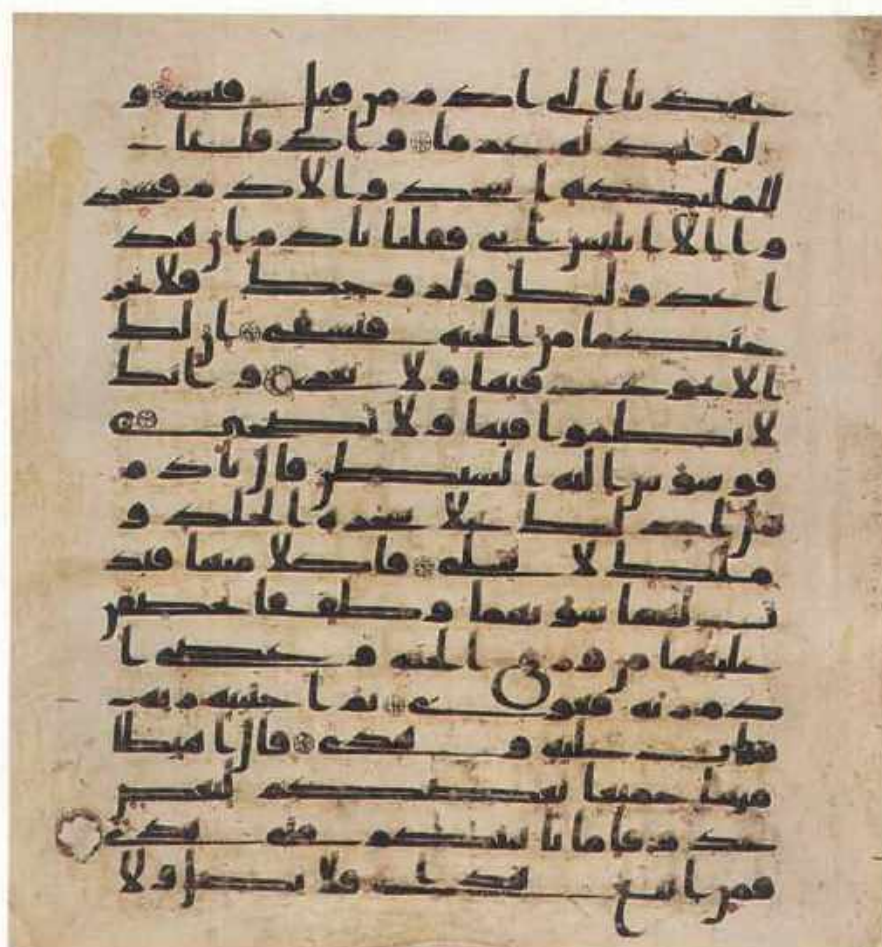 عهدنا الى ادم من قبل فنسى و
لم نجد له عزما واذ قلنا
للملئكة اسجدوا لادم فسجد
وا الا ابليس ابى فقلنا يادم ان هذ
ا عدو لك ولزوجك فلا يخر
جنكما من الجنة فتشقى ان لك
الا تجوع فيها ولا تعرى وانك
لا تظموا فيها ولا تضحى
فوسوس اليه الشيطن قال يادم
هل ادلك على شجرة الخلد و
ملك لا يبلى فاكلا منها فبد
ت لهما سوتهما وطفقا يخصفن
عليهما من ورق الجنة وعصى ا
دم ربه فغوى ثم اجتبيه ربه
فتاب عليه وهدى قال اهبطا
منها جميعا بعضكم لبعض
عدو فاما ياتينكم منى هدى
فمن اتبع هداى فلا يضل ولا